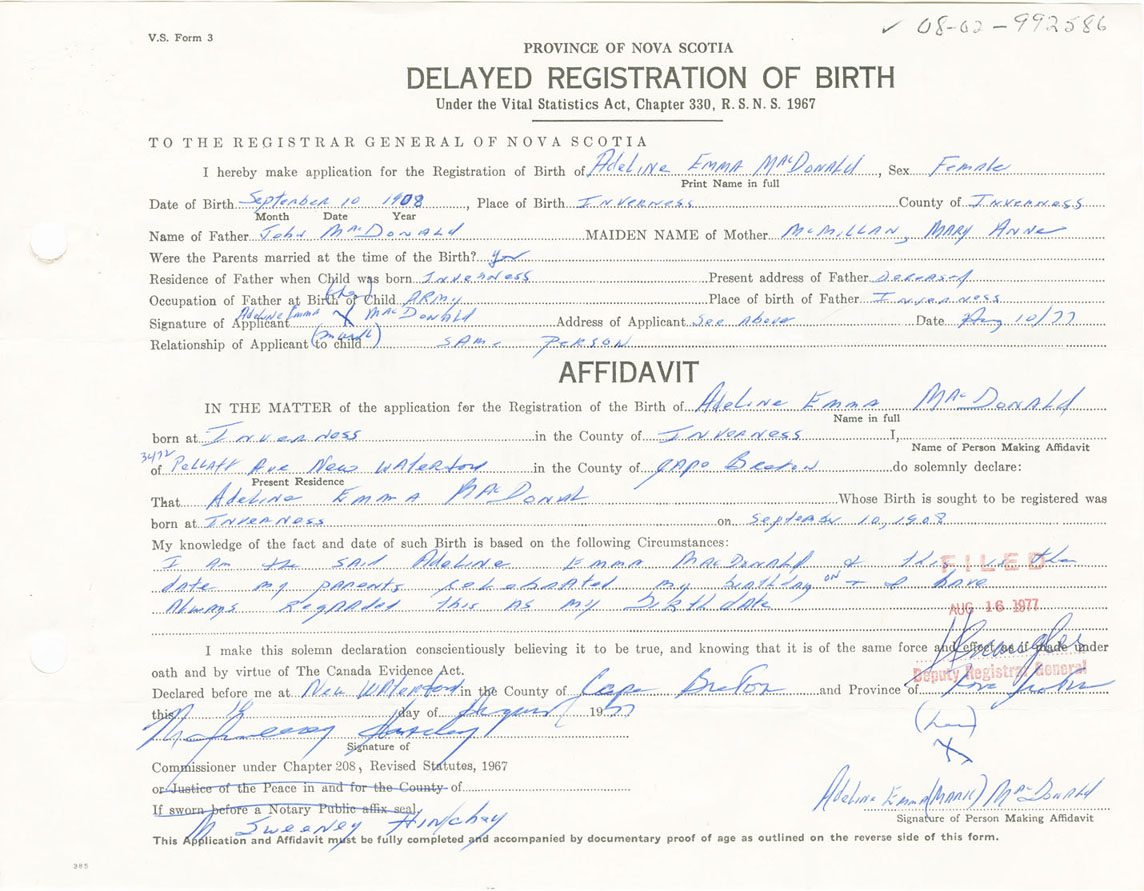 ✓ 08-02-992586
V.S. Form 3
PROVINCE OF NOVA SCOTIA
DELAYED REGISTRATION OF BIRTH
Under the Vital Statistics Act, Chapter 330, R.S.N.S. 1967
TO THE REGISTRAR GENERAL OF NOVA SCOTIA
I hereby make application for the Registration of Birth of Adeline Emma MacDonald, Sex Female
Print Name in full
Date of Birth September 10 1908, Place of Birth Inverness County of Inverness
Month Date Year
Name of Father John MacDonald MAIDEN NAME of Mother McMillan, Mary Anne
Were the Parents married at the time of the Birth? yes
Residence of Father when Child was born Inverness Present address of Father Deceased
Occupation of Father at Birth of Child Army Place of birth of Father Inverness
(her)
Signature of Applicant Adeline Emma X MacDonald Address of Applicant See Above Date Aug 10/77
(mark)
Relationship of Applicant to child same person
AFFIDAVIT
IN THE MATTER of the application for the Registration of the Birth of Adeline Emma MacDonald
Name in full
born at Inverness in the County of Inverness I,
Name of Person Making Affidavit
of 3472 Pellatt Ave New Waterford in the County of Cape Breton do solemnly declare:
Present Residence
That Adeline Emma MacDonal Whose Birth is sought to be registered was
born at Inverness on September 10, 1908
My knowledge of the fact and date of such Birth is based on the following Circumstances:
I am the said Adeline Emma MacDonald & this is the
date my parents celebrated my birthday on & I have
Always regarded this as my birth date
FILED
AUG 16 1977
Deputy Registrar General
I make this solemn declaration conscientiously believing it to be true, and knowing that it is of the same force and effect as if made under
oath and by virtue of The Canada Evidence Act.
Declared before me at New Waterford in the County of Cape Breton and Province of Nova Scotia
this day of August 1977
Signature of
(her)
X
Commissioner under Chapter 208, Revised Statutes, 1967
or Justice of the Peace in and for the County of
If sworn before a Notary Public affix seal.
M Sweeney Hinchey
Adeline Emma (Mark) MacDonald
Signature of Person Making Affidavit
This Application and Affidavit must be fully completed and accompanied by documentary proof of age as outlined on the reverse side of this form.
385